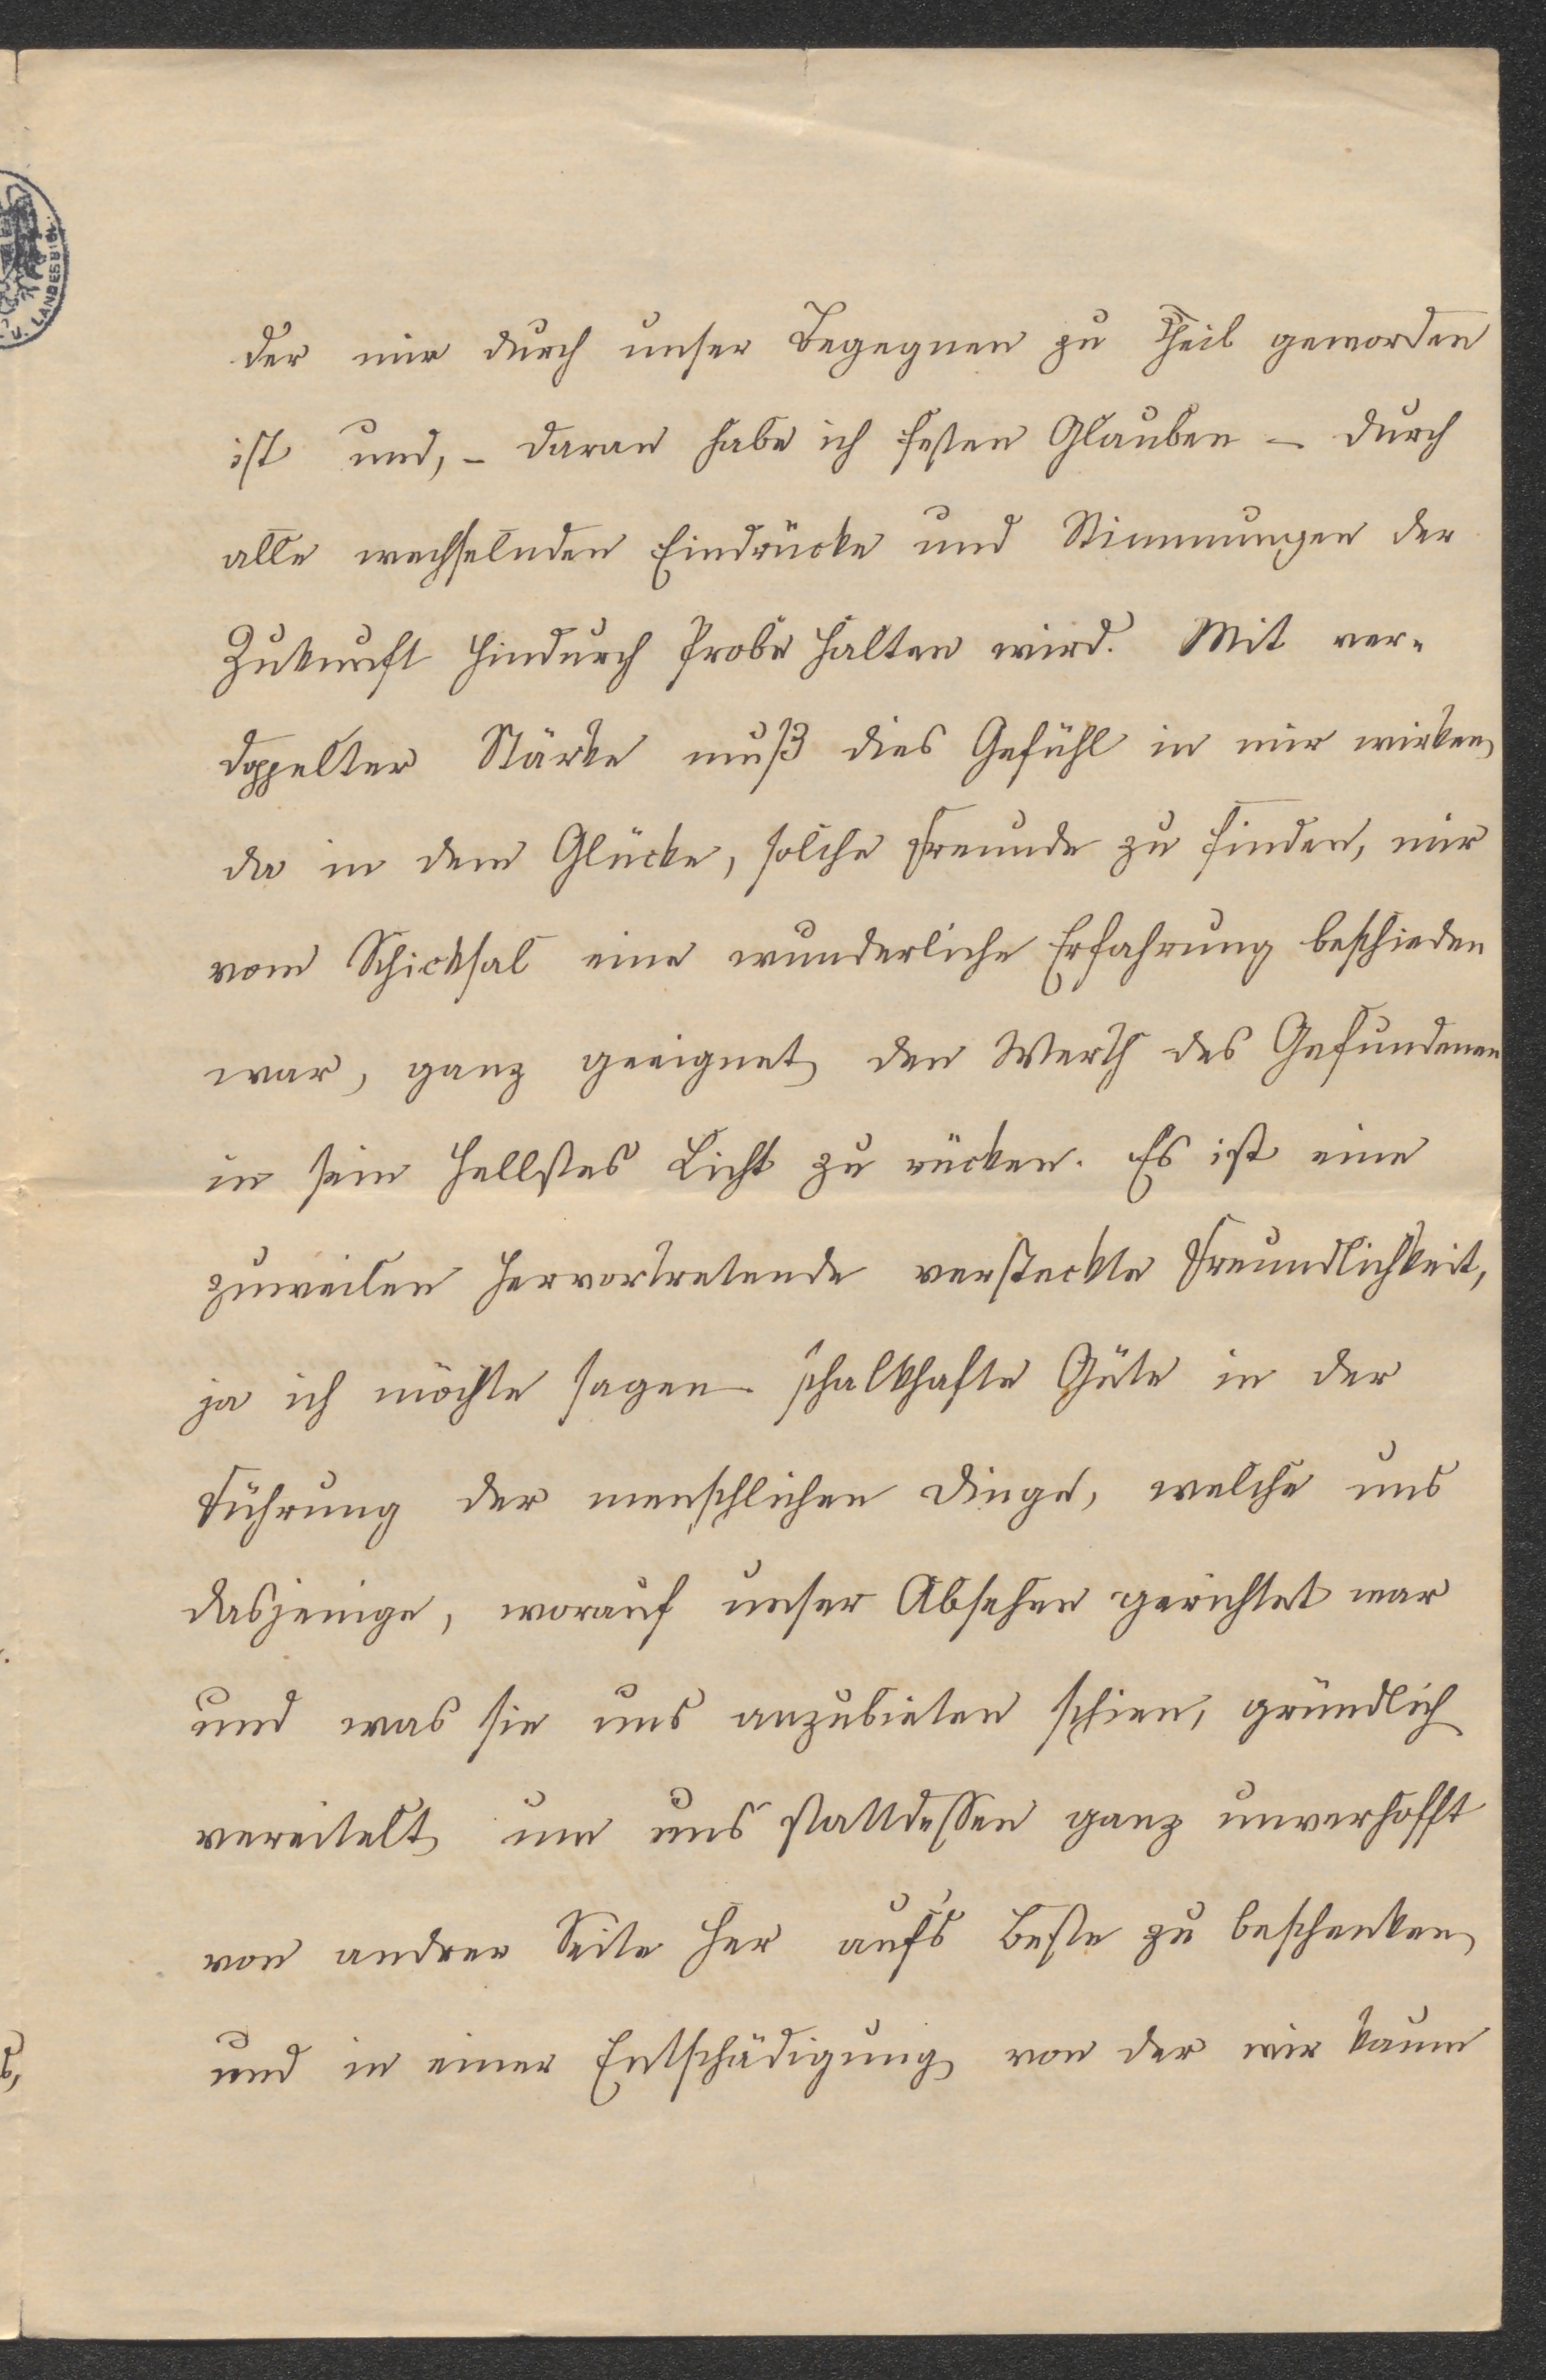 U. LANDESBIBL.
der mir durch unser Begegnen zu Theil geworden
ist und, – daran habe ich festen Glauben – durch
alle wechselnden Eindrücke und Stimmungen der
Zukunft hindurch Probe halten wird. Mit ver-
doppelter Stärke muß dies Gefühl in mir wirken,
da in dem Glücke, solche Freunde zu finden, mir
vom Schicksal eine wunderliche Erfahrung beschieden
war, ganz geeignet den Werth des Gefundenen
in sein hellstes Licht zu rücken. Es ist eine
zuweilen hervortretende versteckte Freundlichkeit,
ja ich möchte sagen schalkhafte Güte in der
Führung der menschlichen Dinge, welche uns
dasjenige, worauf unser Absehen gerichtet war
und was sie uns anzubieten schien, gründlich
vereitelt um uns stattdessen ganz unverhofft
von andrer Seite her auf's Beste zu beschenken
und in einer Entschädigung von der wir kaum